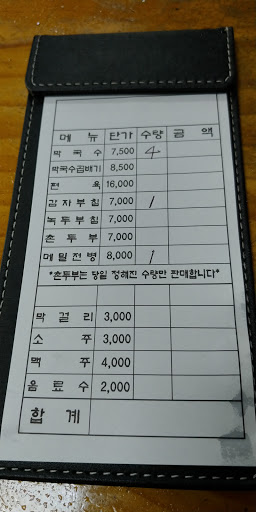 메 뉴 단가 수량 금 액
막 국 수 7,500 4
막국수곱배기 8,500
편 육 16,000
감자부침 7,000 1
녹두부침 7,000
촌 두 부 7,000
메밀전병 8,000 1
*촌두부는 당일 정해진 수량만 판매합니다*
막 걸 리 3,000
소 주 3,000
맥 주 4,000
음 료 수 2,000
합 계